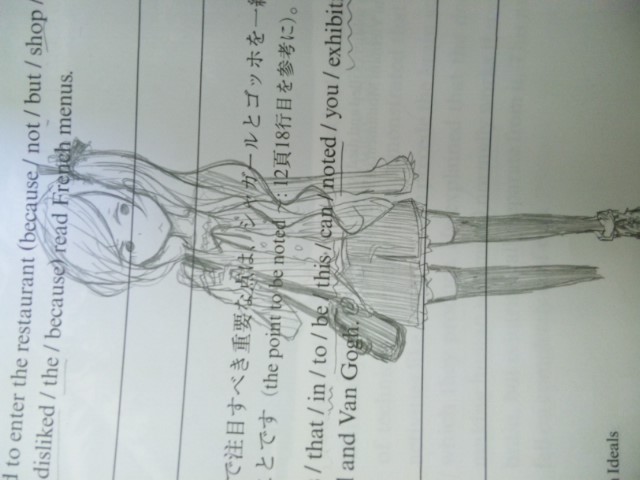 d to enter the restaurant (because / not / but / shop /
disliked / the / because) read French menus.
で注目すべき重要な点は、シャガールとゴッホを一
ことです (the point to be noted ～: 12頁18行目を参考に)。
/ that / in / to / be / this / can / noted / you / exhibit
and Van Gogh.
Ideals